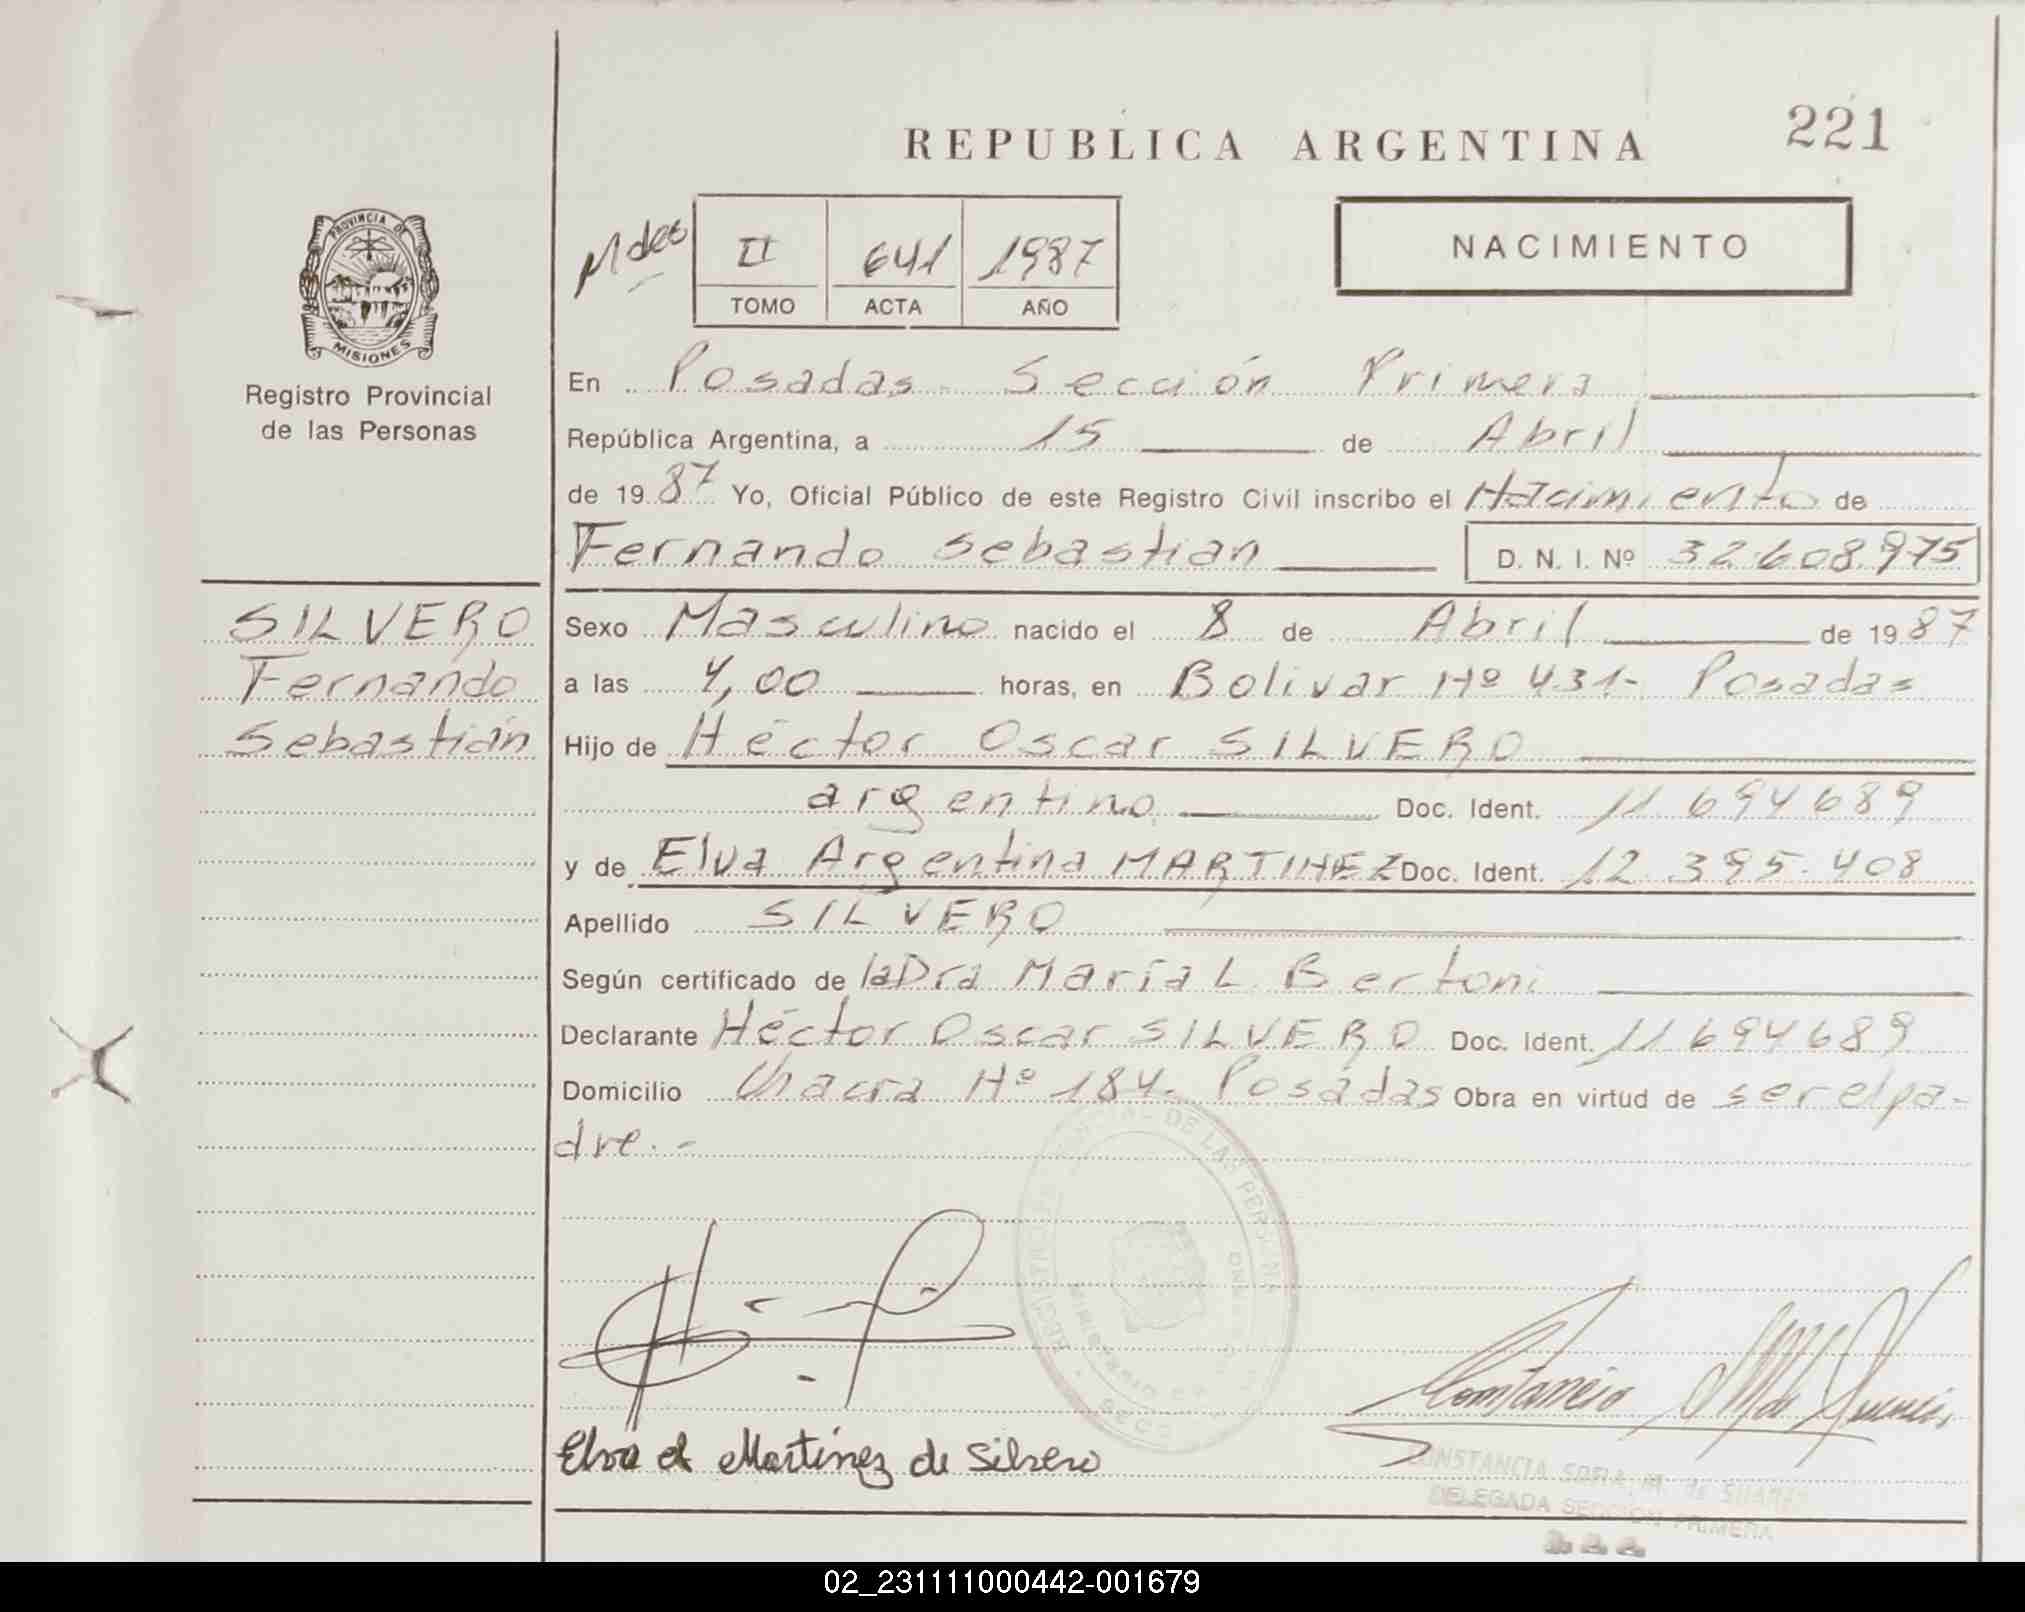 REPUBLICA ARGENTINA
221
PROVINCIA DE
MISIONES
Registro Provincial
de las Personas
II 641 1987
TOMO ACTA AÑO
NACIMIENTO
En Posadas - Sección Primera
República Argentina, a 15 de Abril
de 1987 Yo, Oficial Público de este Registro Civil inscribo el Nacimiento de
Fernando Sebastian D. N. I. Nº 32.608.975
SILVERO
Fernando
Sebastián
Sexo Masculino nacido el 8 de Abril de 1987
a las 4,00 horas, en Bolivar Nº 431- Posadas
Hijo de Héctor Oscar SILVERO
argentino Doc. Ident. 11.694689
y de Elva Argentina MARTINEZ Doc. Ident. 12.395.408
Apellido SILVERO
Según certificado de la Dra María L. Bertoni
Declarante Héctor Oscar SILVERO Doc. Ident. 11694689
Domicilio Chacra Nº 184- Posadas Obra en virtud de ser el pa-
dre.-
DE LAS PERSONAS
Elva A Martínez de Silvero
CONSTANCIA SOFIA M. de SUAREZ
DELEGADA SECCION PRIMERA
02_231111000442-001679